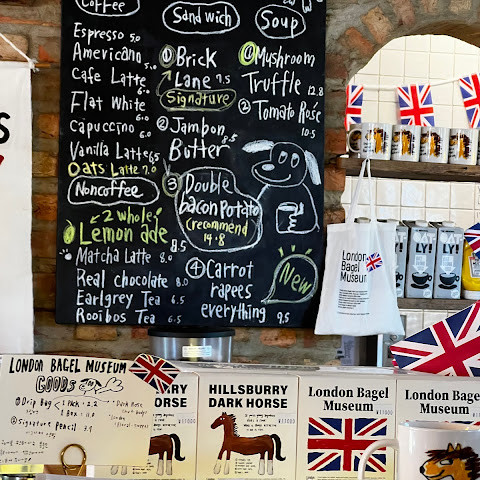 Coffee
Espresso 5.0
Americano 5.0
Cafe Latte 6.0
Flat White 6.0
Capuccino 6.0
Vanilla Latte 6.5
Oats Latte 7.0
Noncoffee
2 whole!
Lemon ade 8.5
Matcha Latte 8.0
Real chocolate 8.0
Earlgrey Tea 6.5
Rooibos Tea 6.5
Sandwich
① Brick
Lane 7.5
Signature
② Jambon
Butter 8.5
③ Double
bacon Potato
recommend
14.8
④ Carrot
rapees
everything 9.5
Soup
① Mushroom
Truffle 12.8
② Tomato Rosé
10.5
New
London
Bagel
Museum
LY!
LY!
LONDON BAGEL MUSEUM
GOODS
① Drip Bag
1 Pack
1 Box
Dark Rose
② Signature Pencil
HORSE
HILLSBURRY
DARK HORSE
London Bagel
Museum
London Bagel
Museum